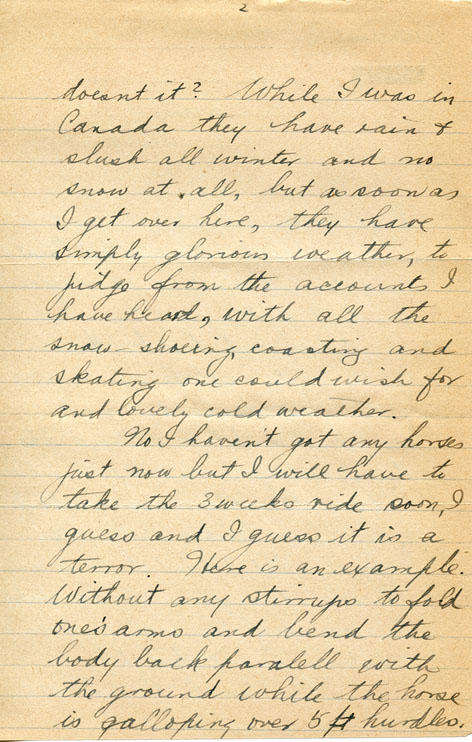 2
doesnt it? While I was in
Canada they have rain &
slush all winter and no
snow at all, but as soon as
I get over here, they have
simply glorious weather, to
judge from the accounts I
have heard, with all the
snow-shoeing, coasting and
skating one could wish for
and lovely cold weather.
No I haven't got any horses
just now but I will have to
take the 3 weeks ride soon, I
guess and I guess it is a
terror. Here is an example.
Without any stirrups to fold
one's arms and bend the
body back paralell with
the ground while the horse
is galloping over 5 ft hurdles.